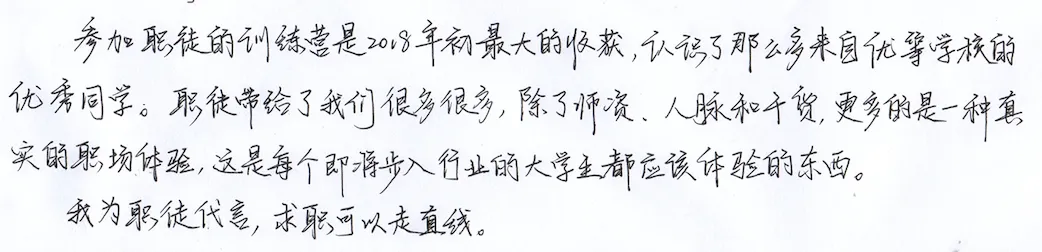 参加职徒的训练营是2018年初最大的收获,认识了那么多来自优等学校的
优秀同学。职徒带给了我们很多很多,除了师资、人脉和干货,更多的是一种真
实的职场体验,这是每个即将步入行业的大学生都应该体验的东西。
我为职徒代言,求职可以走直线。